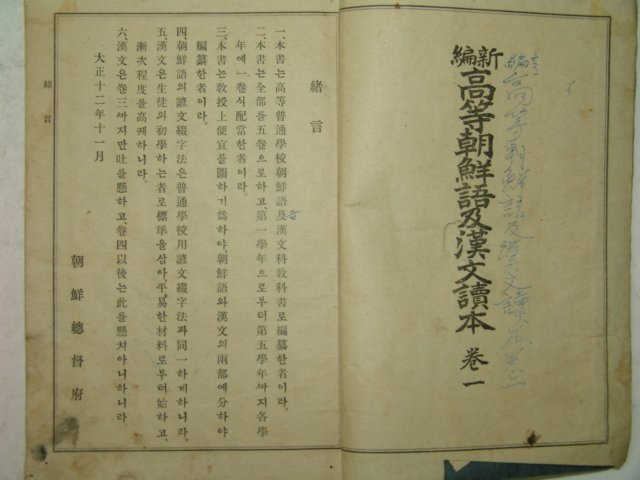 新編高等朝鮮語及漢文讀本 卷一
編高等朝鮮語及漢文讀本卷一
緖言
一、本書는高等普通學校朝鮮語及漢文科敎科書로編纂한者이라.
二、本書는全部를五卷으로하고、第一學年으로부터第五學年ᄭᅡ지各學
年에一卷식配當한者이라.
三、本書는敎授上便宜를圖하기爲하야、朝鮮語와漢文의兩部에分하야
編纂한者이라.
四、朝鮮語의諺文綴字法은普通學校用諺文綴字法과同一하게하니라.
五、漢文은生徒의初學하는者로標準을삼아、平易한材料로부터始하고、
漸次程度를高케하니라.
六、漢文은卷三ᄭᅡ지만吐를懸하고、卷四以後는此를懸치아니하니라.
大正十二年十一月
朝鮮總督府
緖言